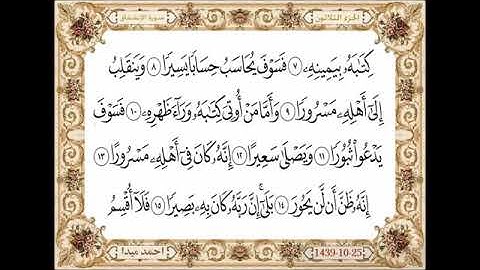 الجزء الثلاثون
سورة الإنشقاق
كِتَٰبَهُۥ بِيَمِينِهِۦ ٧ فَسَوْفَ يُحَاسَبُ حِسَابًا يَسِيرًا ٨ وَيَنقَلِبُ
إِلَىٰٓ أَهْلِهِۦ مَسْرُورًا ٩ وَأَمَّا مَنْ أُوتِىَ كِتَٰبَهُۥ وَرَآءَ ظَهْرِهِۦ ١٠ فَسَوْفَ
يَدْعُوا۟ ثُبُورًا ١١ وَيَصْلَىٰ سَعِيرًا ١٢ إِنَّهُۥ كَانَ فِىٓ أَهْلِهِۦ مَسْرُورًا ١٣
إِنَّهُۥ ظَنَّ أَن لَّن يَحُورَ ١٤ بَلَىٰٓ إِنَّ رَبَّهُۥ كَانَ بِهِۦ بَصِيرًا ١٥ فَلَآ أُقْسِمُ
1439-10-25
احمد ميدا